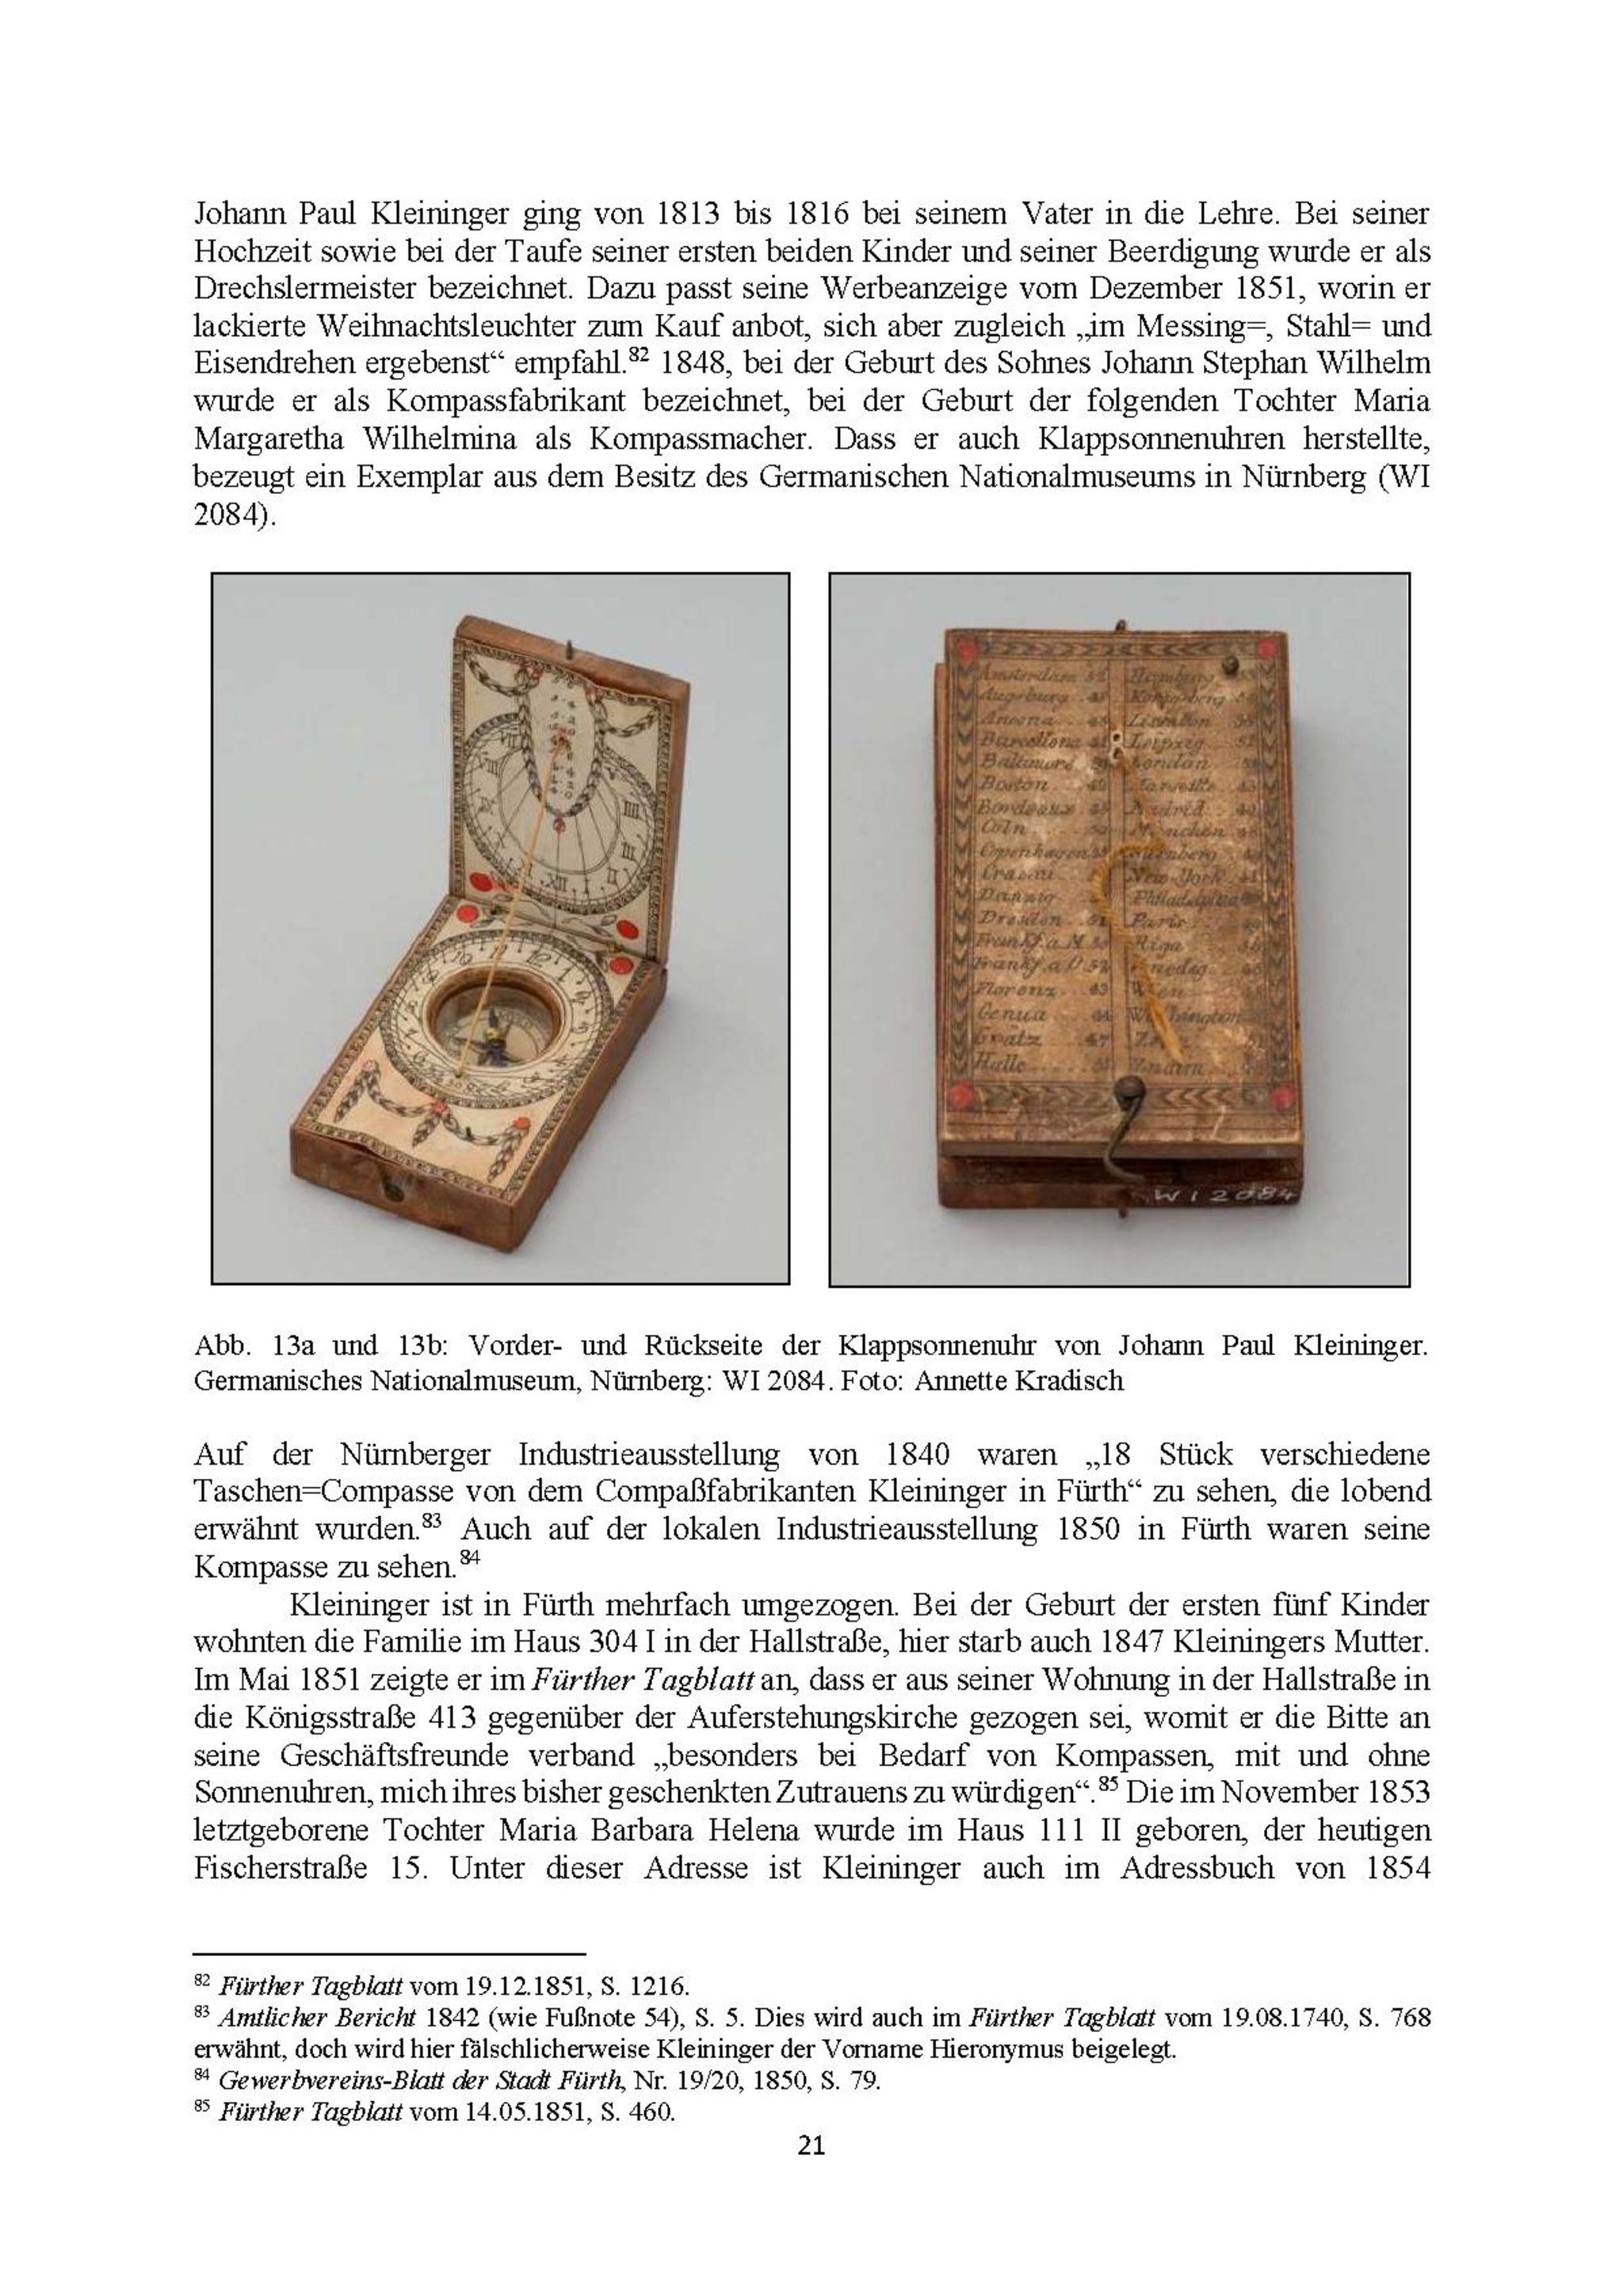 Johann Paul Kleininger ging von 1813 bis 1816 bei seinem Vater in die Lehre. Bei seiner
Hochzeit sowie bei der Taufe seiner ersten beiden Kinder und seiner Beerdigung wurde er als
Drechslermeister bezeichnet. Dazu passt seine Werbeanzeige vom Dezember 1851, worin er
lackierte Weihnachtsleuchter zum Kauf anbot, sich aber zugleich „im Messing=, Stahl= und
Eisendrehen ergebenst“ empfahl.82 1848, bei der Geburt des Sohnes Johann Stephan Wilhelm
wurde er als Kompassfabrikant bezeichnet, bei der Geburt der folgenden Tochter Maria
Margaretha Wilhelmina als Kompassmacher. Dass er auch Klappsonnenuhren herstellte,
bezeugt ein Exemplar aus dem Besitz des Germanischen Nationalmuseums in Nürnberg (WI
2084).
VIII
III
II
I
XII
Amsterdam 52 Hamburg
Augsburg 48
Ancona Lissabon
Barcellona Leipzig
Baltimore London
Boston Marseille 43
Bordeaux Madrid
Cöln München
Copenhagen Nürnberg
Cracau New-York 41
Danzig Philadelphia
Dresden 51 Paris
Frankf a M 50 Riga
Frankf. a O 52 Venedig
Florenz 43 Wien
Genua 44 Washington
Gratz 47
Halle Znaim
WI 2084
Abb. 13a und 13b: Vorder- und Rückseite der Klappsonnenuhr von Johann Paul Kleininger.
Germanisches Nationalmuseum, Nürnberg: WI 2084. Foto: Annette Kradisch
Auf der Nürnberger Industrieausstellung von 1840 waren „18 Stück verschiedene
Taschen=Compasse von dem Compaßfabrikanten Kleininger in Fürth“ zu sehen, die lobend
erwähnt wurden.83 Auch auf der lokalen Industrieausstellung 1850 in Fürth waren seine
Kompasse zu sehen.84
Kleininger ist in Fürth mehrfach umgezogen. Bei der Geburt der ersten fünf Kinder
wohnten die Familie im Haus 304 I in der Hallstraße, hier starb auch 1847 Kleiningers Mutter.
Im Mai 1851 zeigte er im Fürther Tagblatt an, dass er aus seiner Wohnung in der Hallstraße in
die Königsstraße 413 gegenüber der Auferstehungskirche gezogen sei, womit er die Bitte an
seine Geschäftsfreunde verband „besonders bei Bedarf von Kompassen, mit und ohne
Sonnenuhren, mich ihres bisher geschenkten Zutrauens zu würdigen“.85 Die im November 1853
letztgeborene Tochter Maria Barbara Helena wurde im Haus 111 II geboren, der heutigen
Fischerstraße 15. Unter dieser Adresse ist Kleininger auch im Adressbuch von 1854
82 Fürther Tagblatt vom 19.12.1851, S. 1216.
83 Amtlicher Bericht 1842 (wie Fußnote 54), S. 5. Dies wird auch im Fürther Tagblatt vom 19.08.1740, S. 768
erwähnt, doch wird hier fälschlicherweise Kleininger der Vorname Hieronymus beigelegt.
84 Gewerbvereins-Blatt der Stadt Fürth, Nr. 19/20, 1850, S. 79.
85 Fürther Tagblatt vom 14.05.1851, S. 460.
21